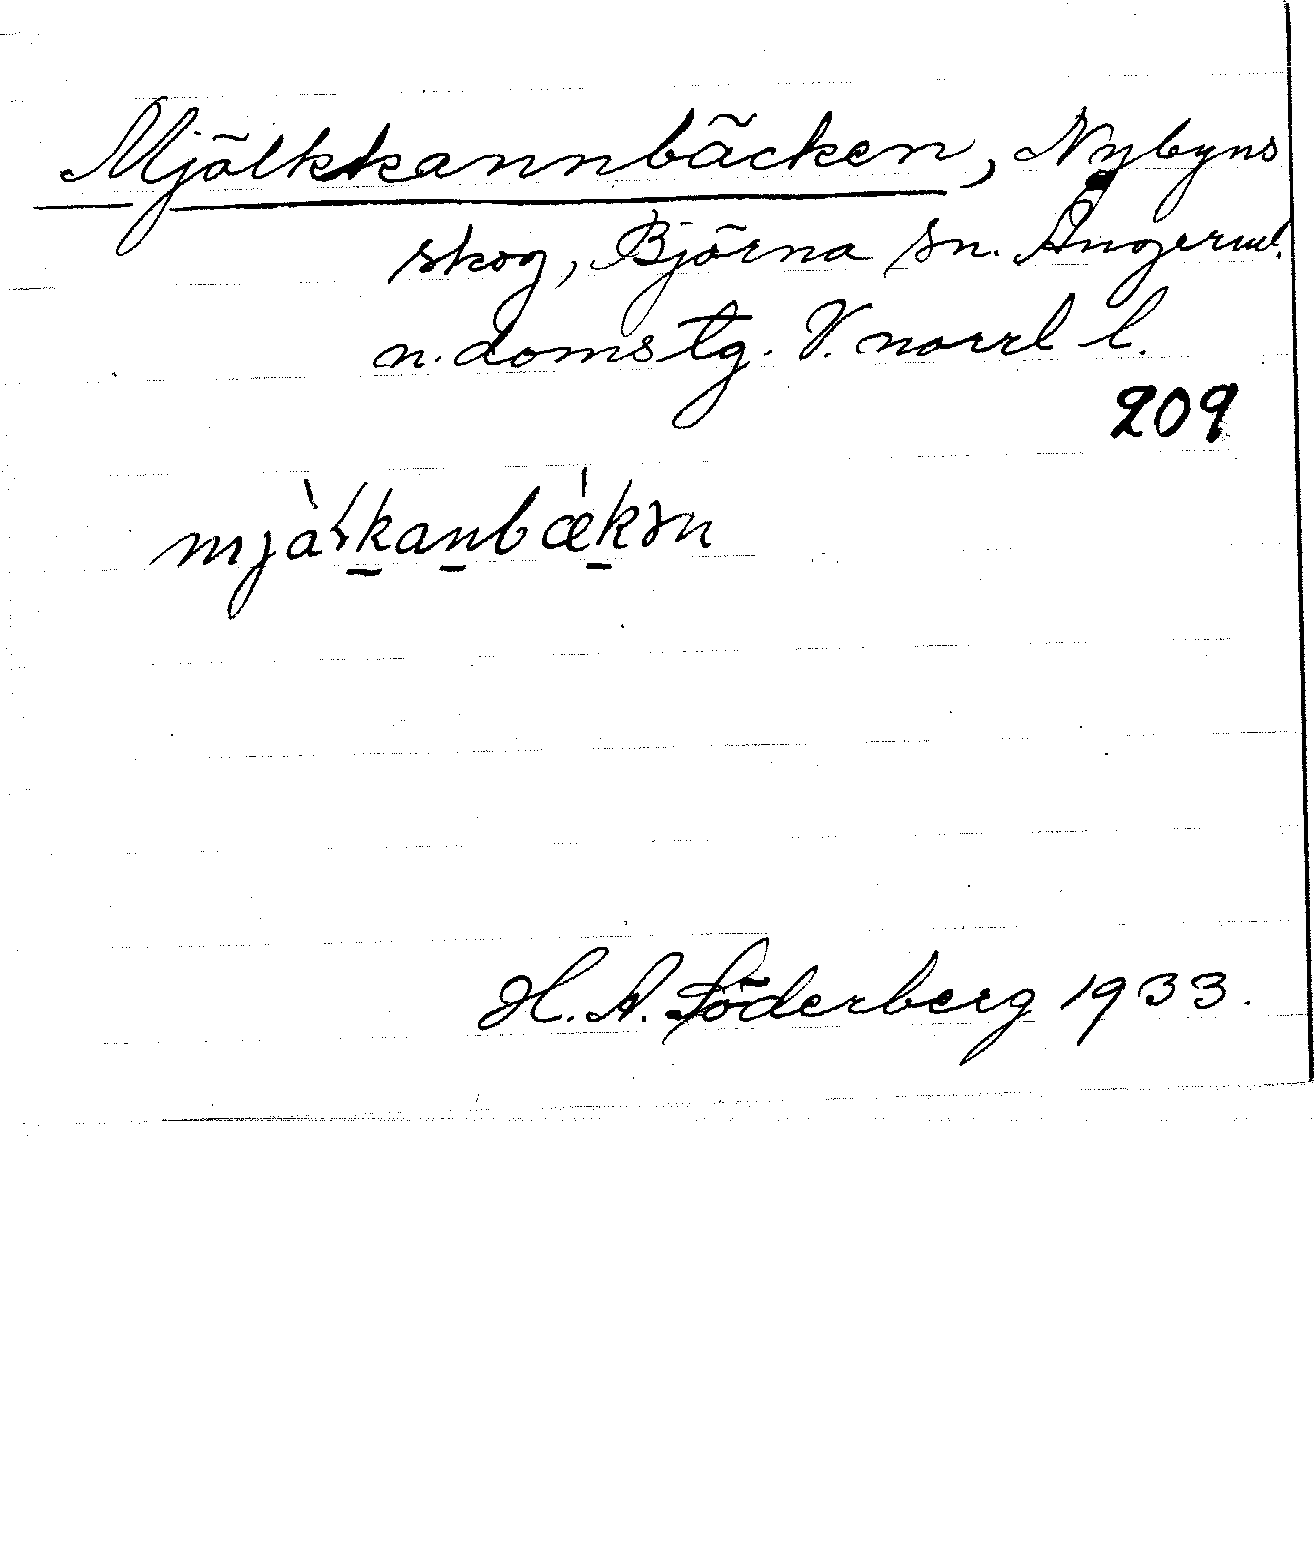 Mjölkkannbäcken, Nybyns
skog, Björna sn. Ångerml.
n. domstg. V. norrl l.
209
H. A. Söderberg 1933.